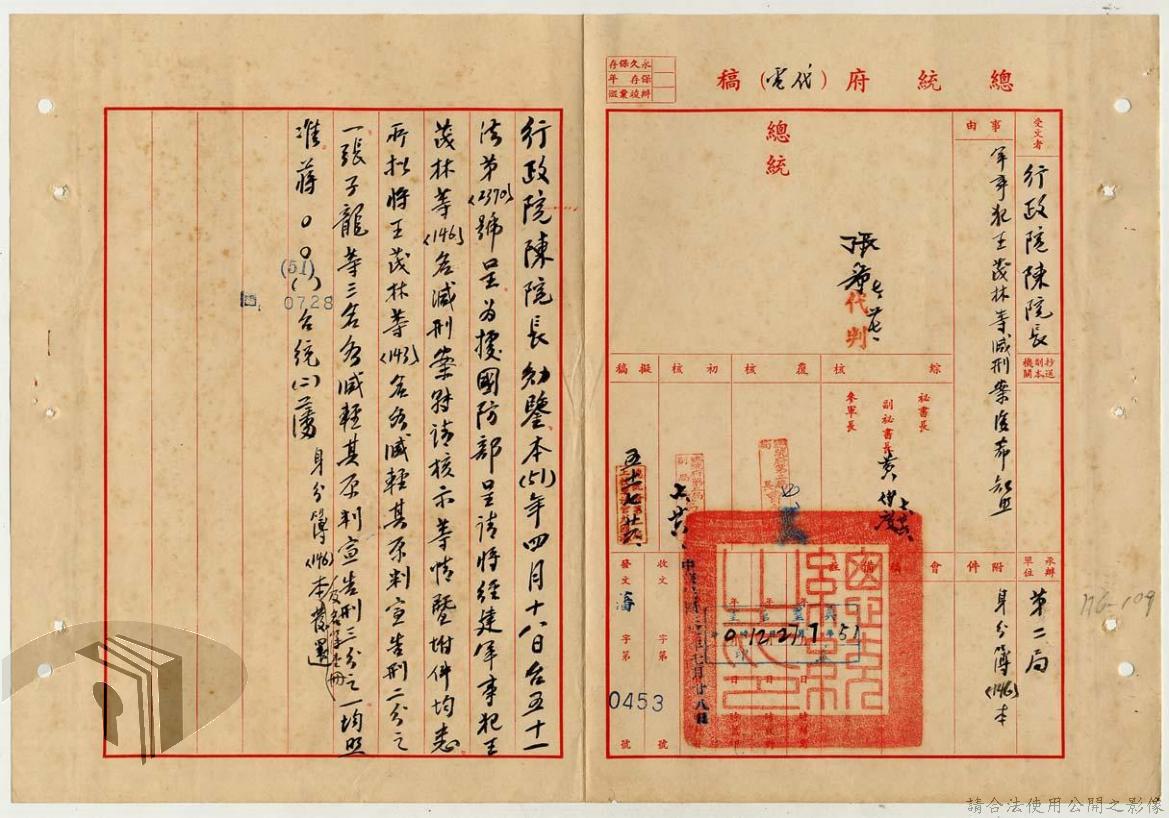 總統府（代電）稿
永久保存
保存 年
受文者 行政院陳院長
抄送副本機關
承辦單位 第二局
事由 軍事犯王茂林等減刑案復希知照
附件 身分簿(146)本
總統
張羣 代判
綜核
秘書長
副秘書長 黃伯度
參軍長
覆核
初核
擬稿
會
收文 字第 號
發文 字第 號
0453
0-12-27 7 51
行政院陳院長勛鑒本(51)年四月十八日台五十一
法第(2370)號呈為據國防部呈請將經建軍事犯王
茂林等(146)名減刑案轉請核示等情暨附件均悉
所擬將王茂林等(143)名各減輕其原判宣告刑二分之
一張子龍等三名各減輕其原判宣告刑三分之一均照
准蔣○○(51) 0728 台統(二)藩 身分簿(146)本及名單壹冊發還
請合法使用公開之影像